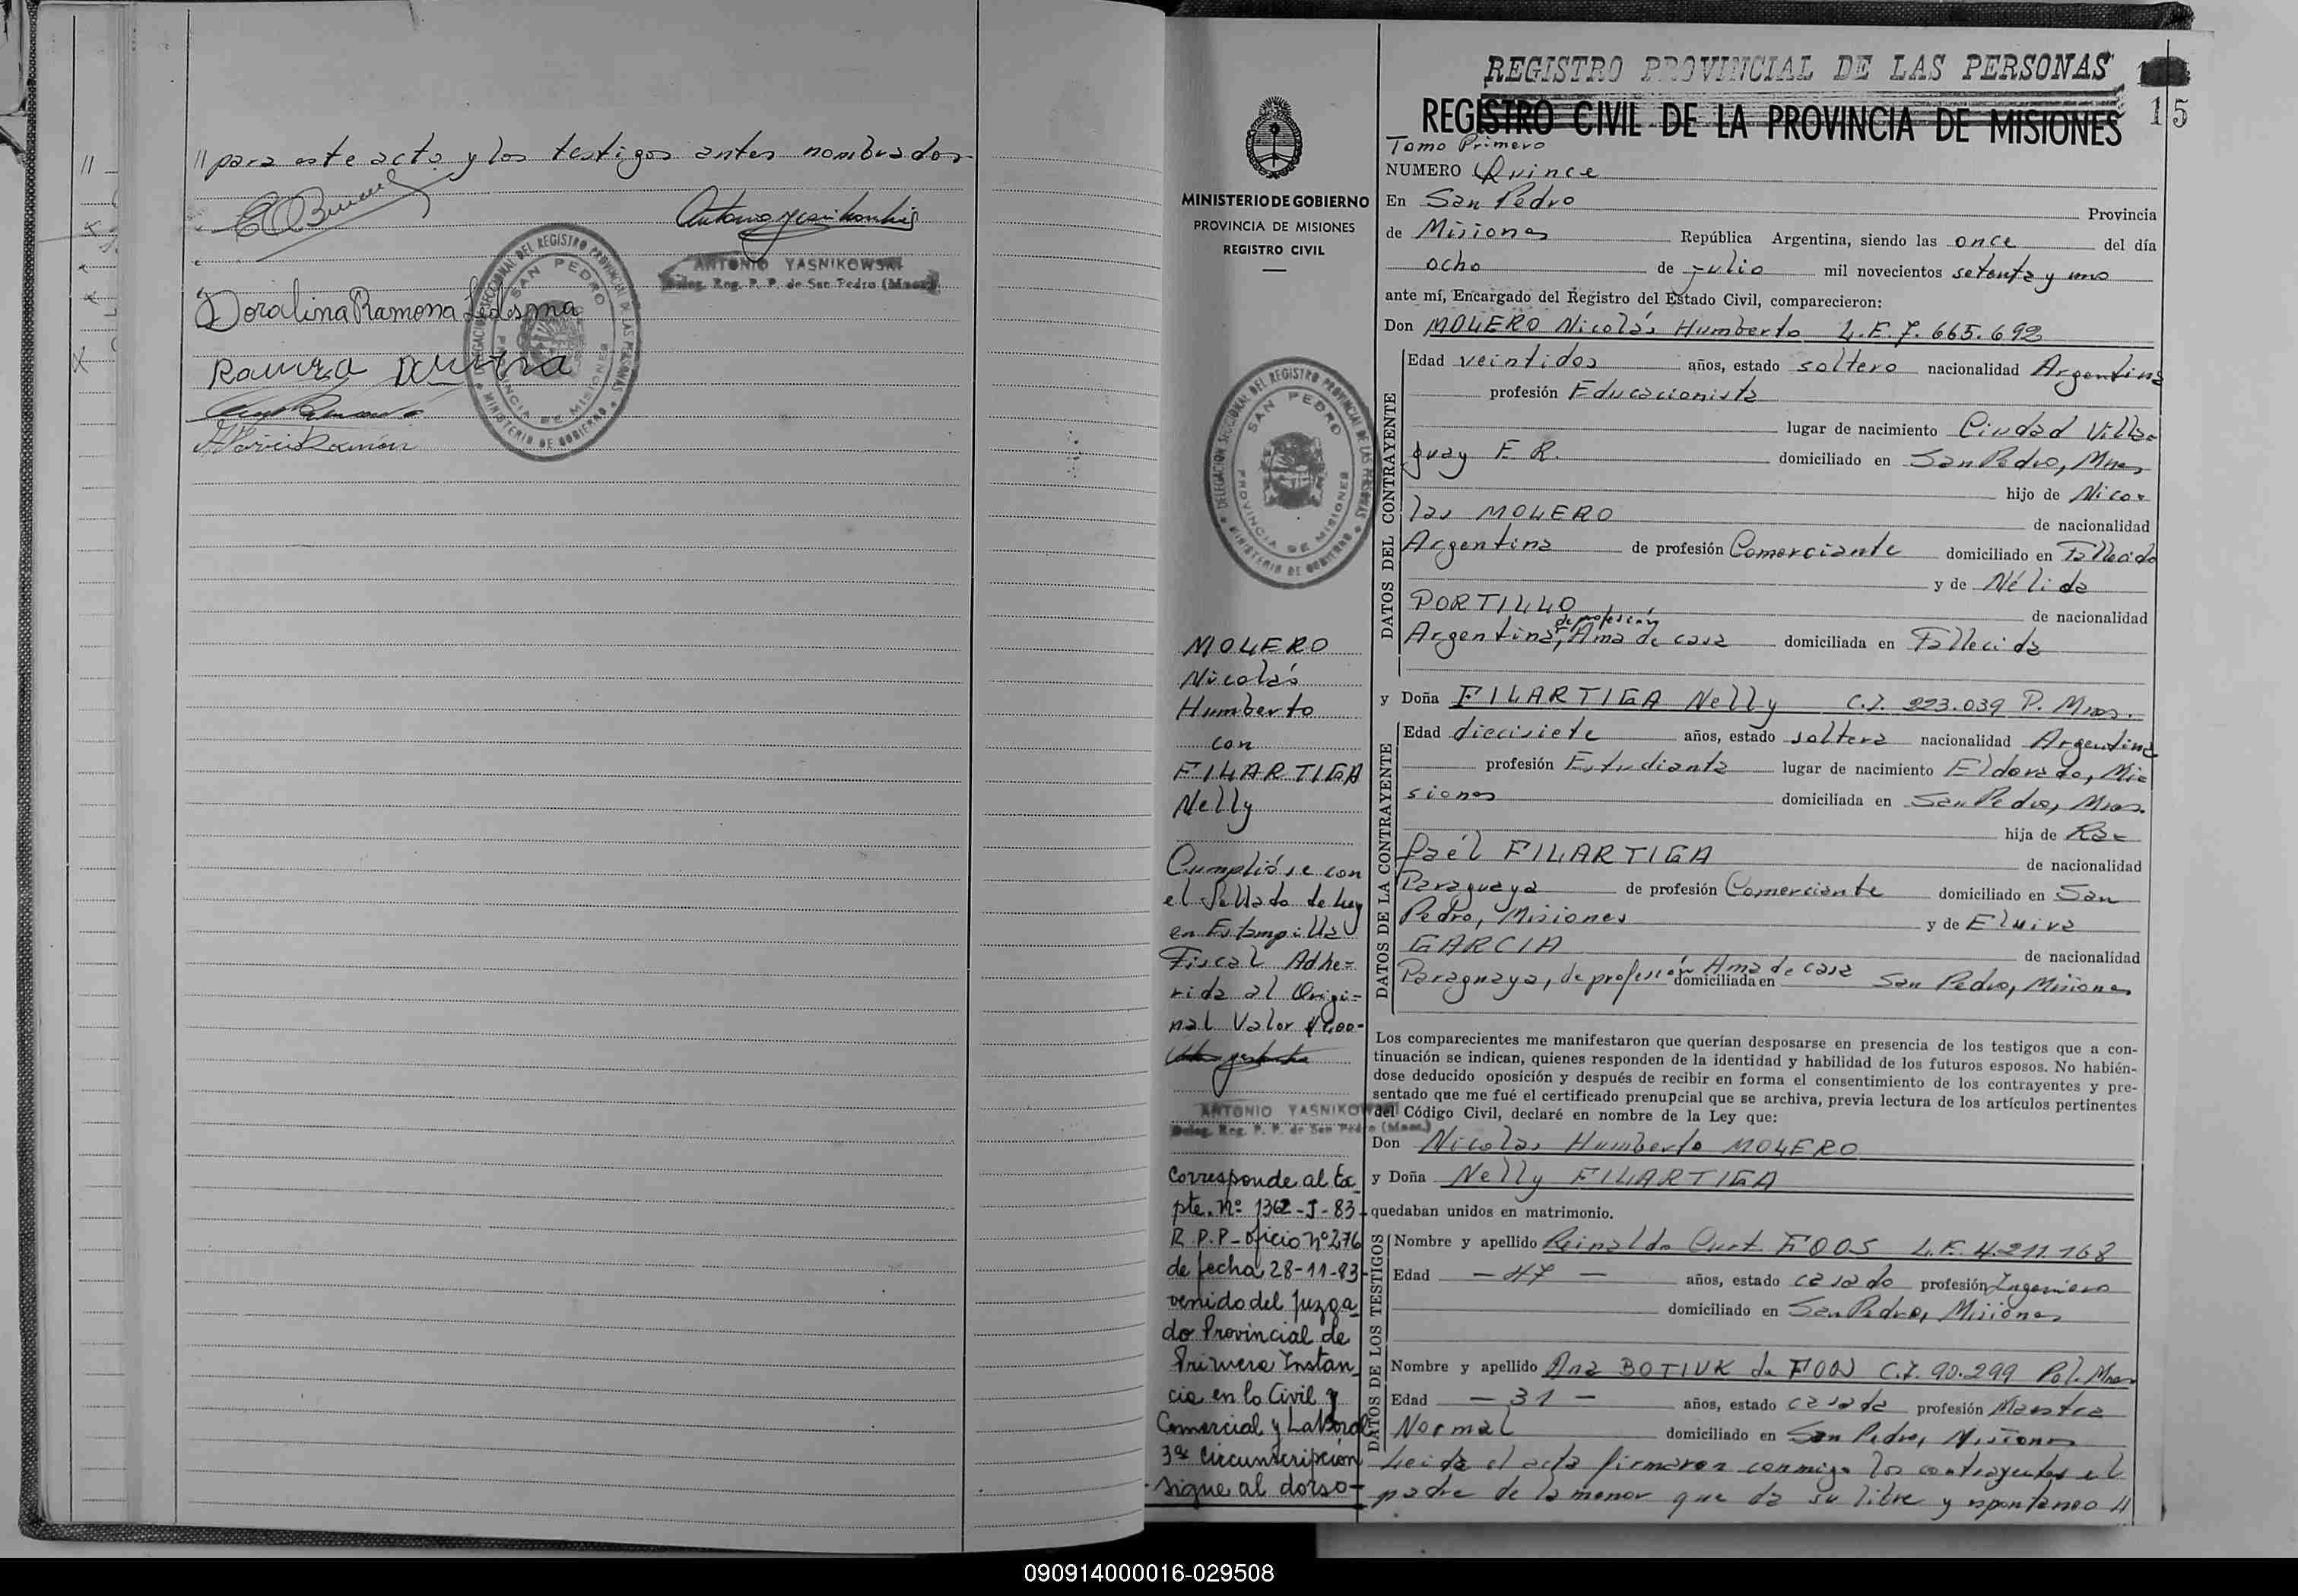 // para este acto y los testigos antes nombrados
ANTONIO YASNIKOWSKI
Deleg. Reg. P. P. de San Pedro (Mnes.)
Doralina Ramona Ledesma
DELEGACION SECCIONAL DEL REGISTRO PROVINCIAL DE LAS PERSONAS
SAN PEDRO
PROVINCIA DE MISIONES
MINISTERIO DE GOBIERNO
REGISTRO PROVINCIAL DE LAS PERSONAS
REGISTRO CIVIL DE LA PROVINCIA DE MISIONES
15
MINISTERIO DE GOBIERNO
PROVINCIA DE MISIONES
REGISTRO CIVIL
DELEGACION SECCIONAL DEL REGISTRO PROVINCIAL DE LAS PERSONAS
SAN PEDRO
PROVINCIA DE MISIONES
MINISTERIO DE GOBIERNO
MOLERO
Nicolás
Humberto
con
FILARTIGA
Nelly
Cumplióse con
el Sellado de Ley
en Estampilla
Fiscal Adhe=
rida al Origi=
nal Valor
ANTONIO YASNIKOWSKI
Deleg. Reg. P. P. de San Pedro (Mnes.)
Corresponde al Ex_
pte. Nº 1362-J-83-
R.P.P- oficio nº 276
de fecha 28-11-83-
venido del Juzga_
do Provincial de
Primera Instan_
cia en lo Civil y
Comercial y Laboral
3ª Circunscripción
-sigue al dorso-
Tomo Primero
NUMERO Quince
En San Pedro Provincia
de Misiones República Argentina, siendo las once del día
ocho de Julio mil novecientos setenta y uno
ante mí, Encargado del Registro del Estado Civil, comparecieron:
Don MOLERO Nicolás Humberto L.E. 7.665.692
DATOS DEL CONTRAYENTE
Edad veintidos años, estado soltero nacionalidad Argentina
profesión Educacionista
lugar de nacimiento Ciudad Villa=
guay E R. domiciliado en San Pedro, Mnes
hijo de Nico=
las MOLERO de nacionalidad
Argentina de profesión Comerciante domiciliado en Fallecido
y de Nélida
PORTILLO de nacionalidad
Argentina, de profesión Ama de casa domiciliada en Fallecida
y Doña FILARTIGA Nelly C.I. 223.039 P. Mnes.
DATOS DE LA CONTRAYENTE
Edad diecisiete años, estado soltera nacionalidad Argentina
profesión Estudianta lugar de nacimiento Eldorado, Mi=
siones domiciliada en San Pedro, Mnes.
hija de Ra=
faél FILARTIGA de nacionalidad
Paraguaya de profesión Comerciante domiciliado en San
Pedro, Misiones y de Elvira
GARCIA de nacionalidad
Paraguaya, de profesión Ama de casa domiciliada en San Pedro, Misiones
Los comparecientes me manifestaron que querían desposarse en presencia de los testigos que a con-
tinuación se indican, quienes responden de la identidad y habilidad de los futuros esposos. No habién-
dose deducido oposición y después de recibir en forma el consentimiento de los contrayentes y pre-
sentado que me fué el certificado prenupcial que se archiva, previa lectura de los artículos pertinentes
del Código Civil, declaré en nombre de la Ley que:
Don Nicolas Humberto MOLERO
y Doña Nelly FILARTIGA
quedaban unidos en matrimonio.
DATOS DE LOS TESTIGOS
Nombre y apellido Reinaldo Curt FOOS L.E. 4.211.168
Edad - 47 - años, estado casado profesión Ingeniero
domiciliado en San Pedro, Misiones
Nombre y apellido Ana BOTIUK de FOOS C.I. 90.299 Pol. Mnes
Edad - 31 - años, estado casada profesión Maestra
Normal domiciliado en San Pedro, Misiones
Leida el acta firmaron conmigo los contrayentes el
padre de la menor que da su libre y espontaneo //
090914000016-029508